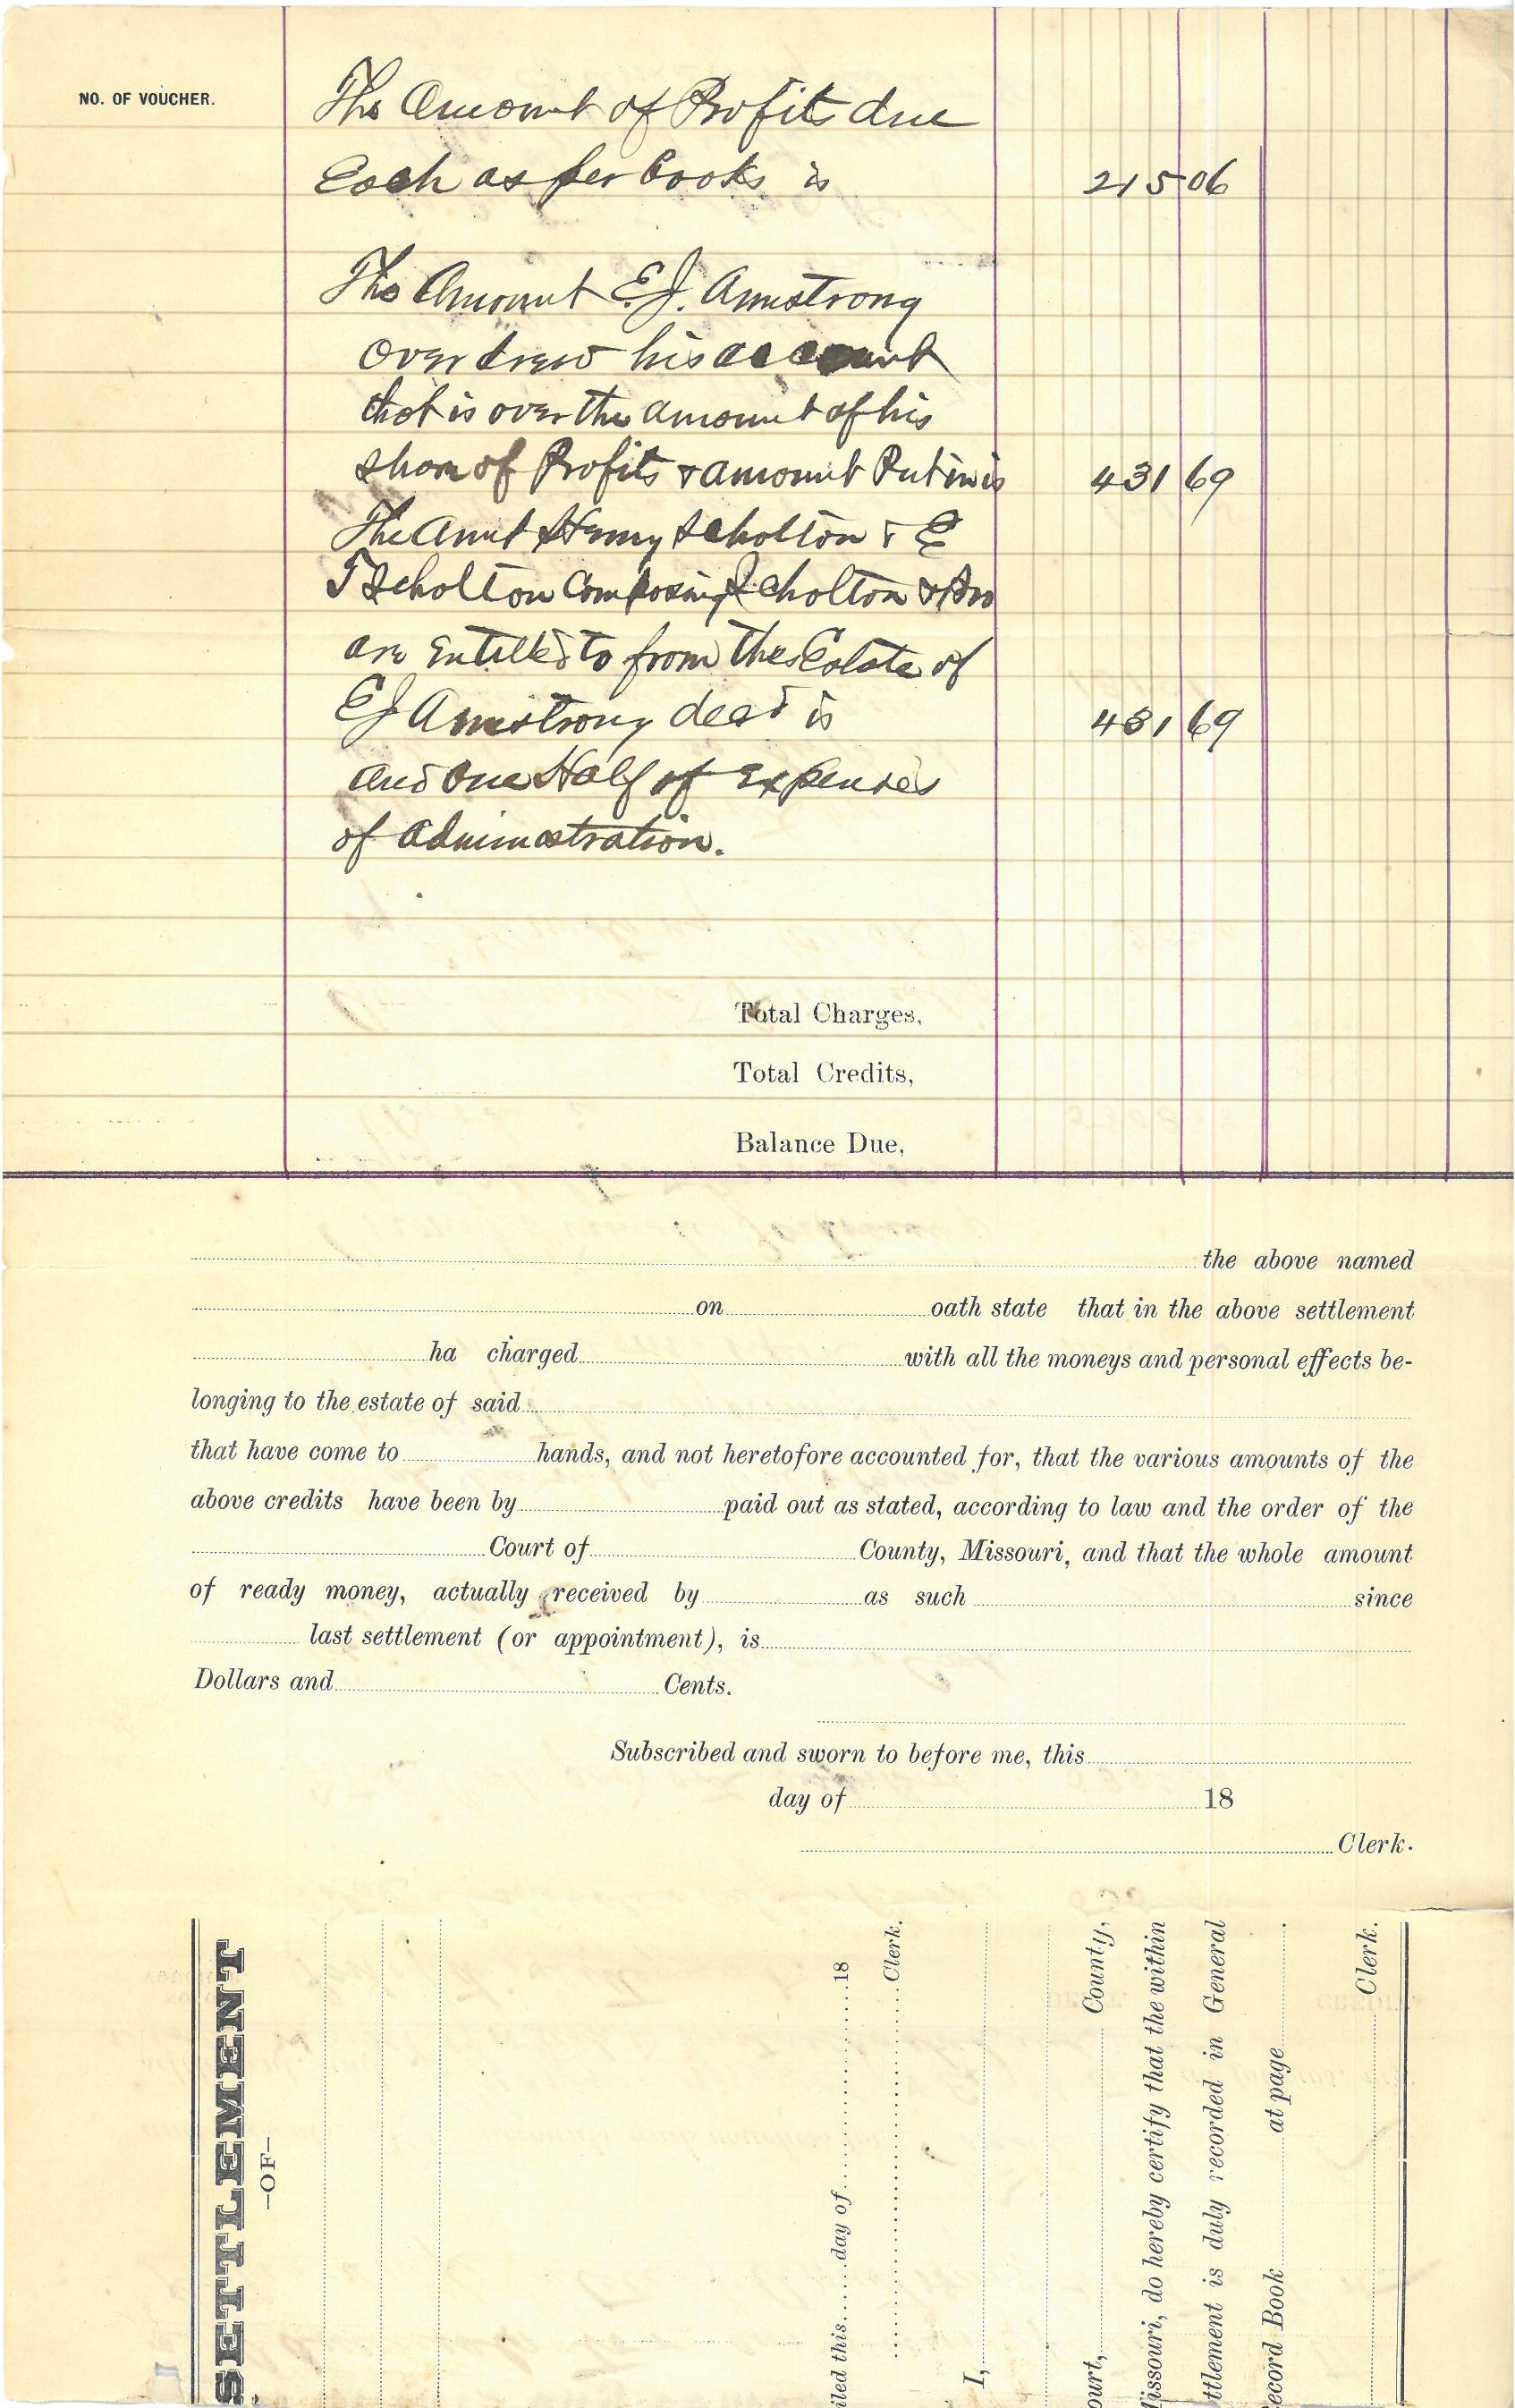 NO. OF VOUCHER.
The Amount of Profits due
Each as per books is 215 06
The Amount E. J. Armstrong
over drew his account
that is over the amount of his
share of Profits & amount Put in is 431 69
The Amt Henry Scholton & E
J Scholton Composing Scholton & Bro
are Entitled to from the Estate of
E J Armstrong decd is 431 69
and One Half of Expenses
of Administration.
Total Charges,
Total Credits,
Balance Due,
the above named
on oath state that in the above settlement
ha charged with all the moneys and personal effects be-
longing to the estate of said
that have come to hands, and not heretofore accounted for, that the various amounts of the
above credits have been by paid out as stated, according to law and the order of the
Court of County, Missouri, and that the whole amount
of ready money, actually received by as such since
last settlement (or appointment), is
Dollars and Cents.
Subscribed and sworn to before me, this
day of 18
Clerk.
SETTLEMENT
—OF—
iled this day of 18
Clerk.
I,
ourt, County,
issouri, do hereby certify that the within
ttlement is duly recorded in General
ecord Book at page .
Clerk.